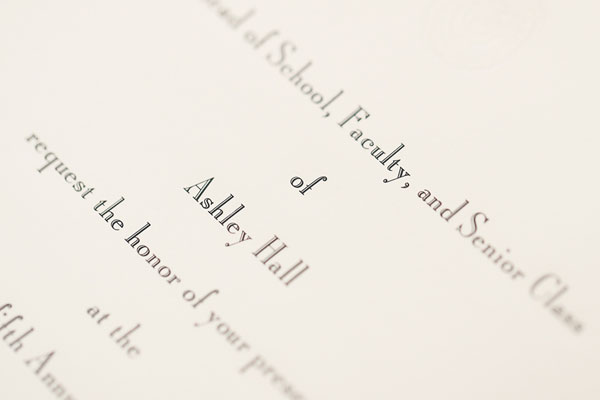 of School, Faculty, and Senior Class
of
Ashley Hall
request the honor of your
at the